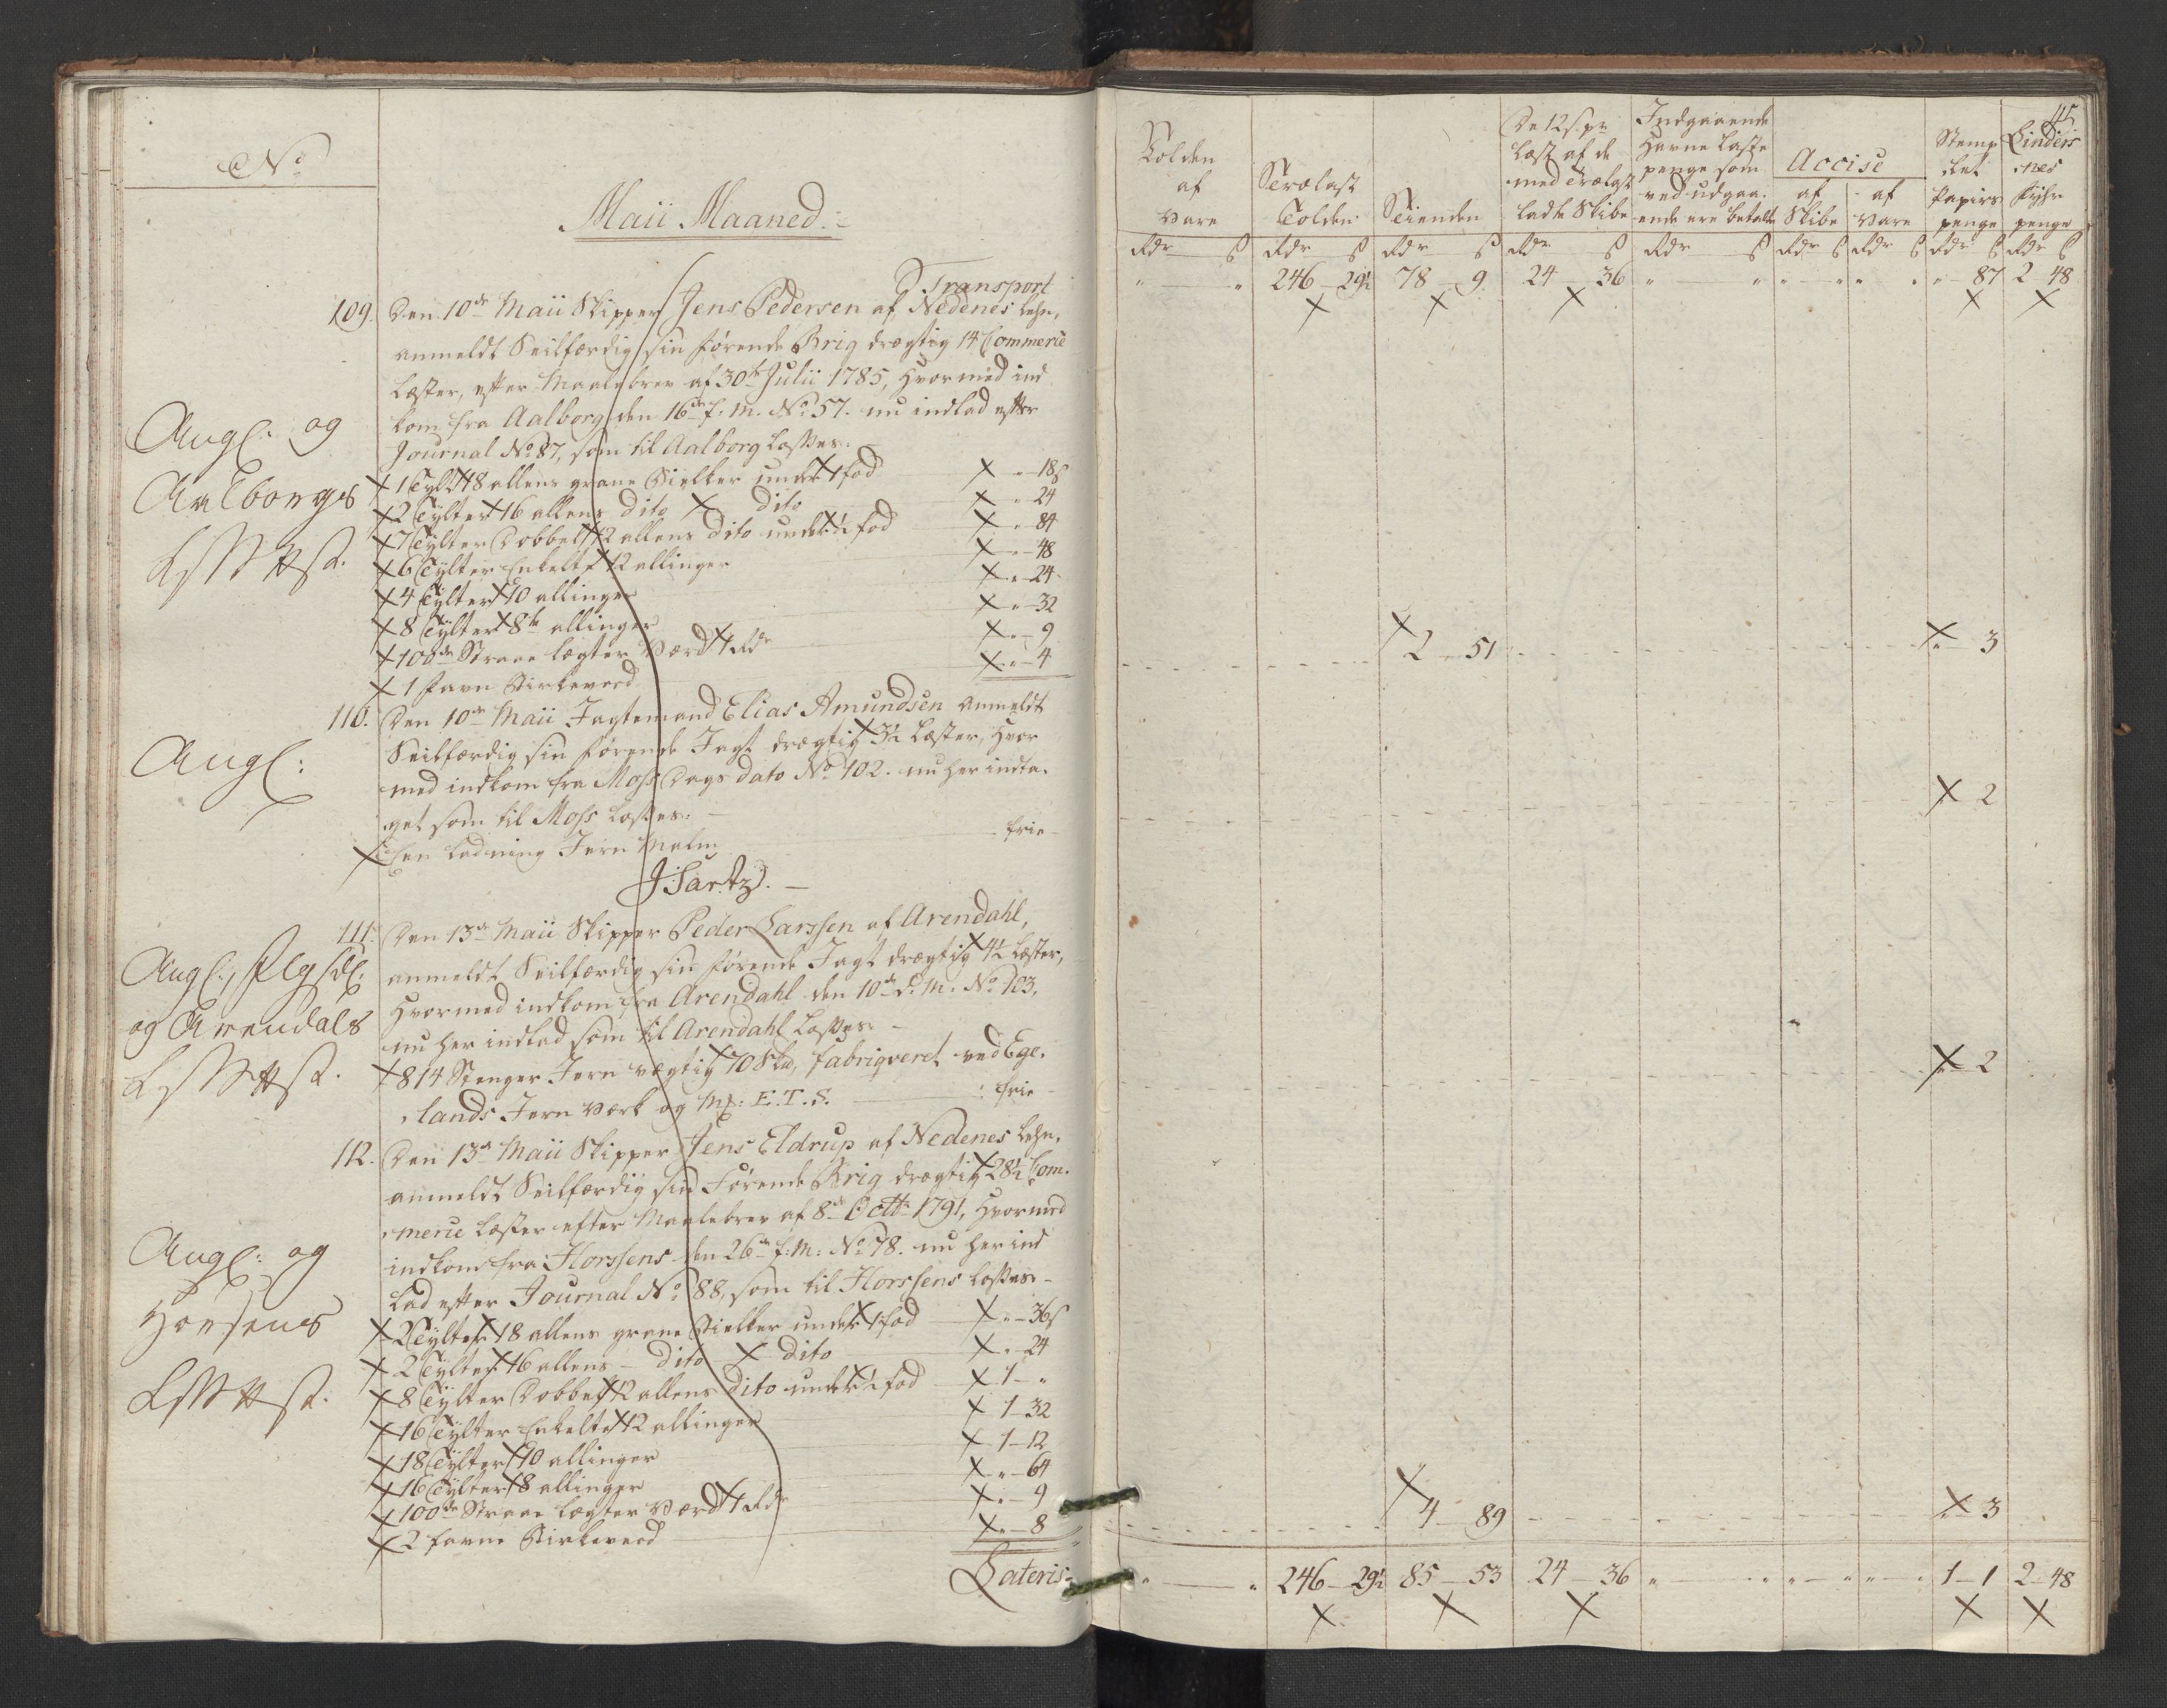 No
Maii Maaned:
Transport
109. Den 10de Maii Skipper Jens Pedersen af Nedenes Lehn,
anmeldt Seilfærdig sin førende Brig drægtig 14 Commercie
Læster, efter Maalebrev af 30te Julii 1785, Hvormed ind
kom fra Aalborg den 16de f: M. No 57. nu indlad efter
Journal No 87, som til Aalborg Losses.
Angl: og
Aalborgs
1 Tylt 18 allens grane Sielker under 1 fod " 18ß
2 Tylter 16 allens dito dito " 24
7 Tylter Dobbelt 12 allens dito under ½ fod " 84
6 Tylter Enkelte 12 allinger " 48
4 Tylter 10 allinger " 24
8 Tylter 8te allinger " 32
100de Straae Lægter Værd 1 Rdr " 9
1 Favn Birkeved " 4
110. Den 10de Maii Jagtemand Elias Amundsen Anmeldt
Seilfærdig sin førende Jagt drægtig 3½ Læster, Hvor
med indkom fra Moss Dags dato No 102. nu her indta-
get som til Moss Losses:
Angl:
En Ladning Jern Malm frie
J Sartz.
111. Den 13de Maii Skipper Peder Larssen af Arendahl,
anmeldt Seilfærdig sin førende Jagt drægtig 4½ Læster,
Hvormed indkom fra Arendahl den 10de d: M: No 103,
nu her indlad som til Arendahl Losses.
Angl:,
og Arendals
814 Stenger Jern vægtig 70 Sk℔, fabriqveret ved Ege-
lands Jern Værk og M: E.T.S. frie
112. Den 13de Maii Skipper Jens Eldrup af Nedenes Lehn,
anmeldt Seilfærdig sin Førende Brig drægtig 28½ Com-
mercie Læster efter Maalebrev af 8de Octbr 1791, Hvormed
indkom fra Horssens den 26de f: M: No 78. nu her ind
lad efter Journal No 88, som til Horssens Losses
Angl: og
Horsens
2 Tylter 18 allens grane Sielker under 1 fod " 36ß
2 Tylter 16 allens dito dito " 24
8 Tylter Dobbelt 12 allens dito under ½ fod 1 "
16 Tylter Enkelte 12 allinger 1 32
18 Tylter 10 allinger 1 12
16 Tylter 8 allinger " 64
100de Straae Lægter Værd 1 Rdr " 9
2 Favne Birkeved " 8
Lateris
45
Tolden af Vare
Trælast Tolden
Tienden
De 12 s. pr Læst af de med Trælast ladte Skibe
Indgaaende Havne Laste penge som ved udgaaende ere betalte
Accise
af Skibe
af Vare
Stemplet Papirs penge
Lindesnes Fyhr penge
Rdr ß Rdr ß Rdr ß Rdr ß Rdr ß Rdr ß Rdr ß Rdr ß Rdr ß
246 29½ 78 9 24 36 " 87 2 48
2 51 " 3
2
" 2
4 89 " 3
246 29½ 85 53 24 36 1 1 2 48